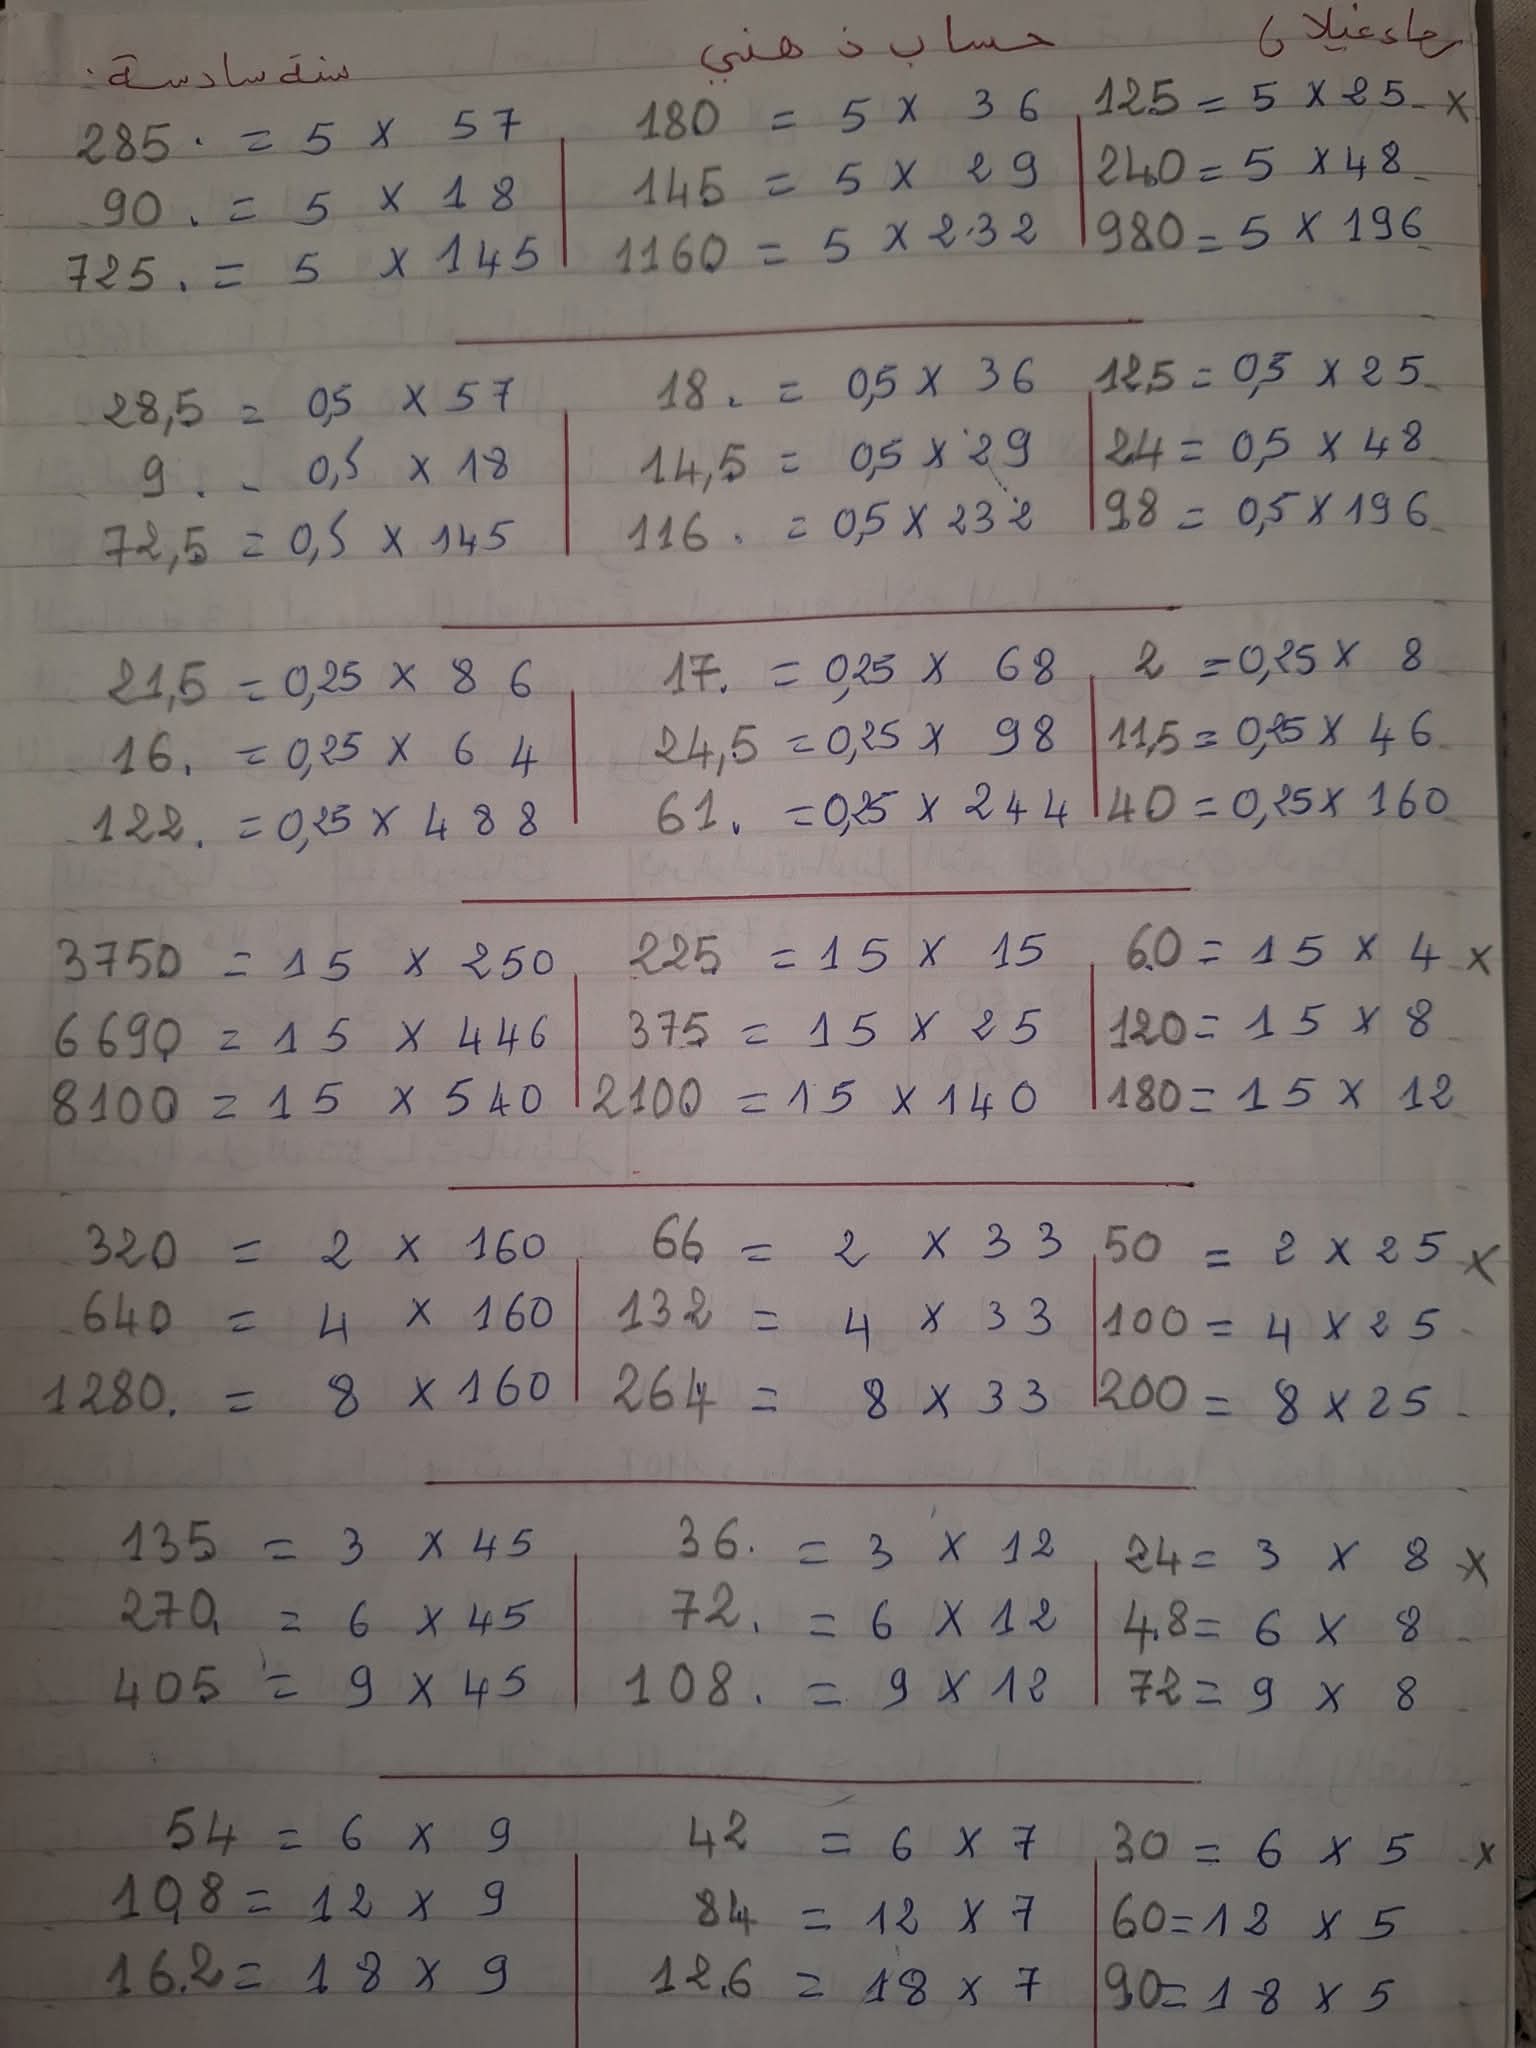 رجاء غيلاني حساب ذهني سنة سادسة
285 = 5 x 57 180 = 5 x 36 125 = 5 x 25 x
90 = 5 x 18 145 = 5 x 29 240 = 5 x 48
725 = 5 x 145 1160 = 5 x 232 980 = 5 x 196
28,5 = 0,5 x 57 18 = 0,5 x 36 12,5 = 0,5 x 25
9 = 0,5 x 18 14,5 = 0,5 x 29 24 = 0,5 x 48
72,5 = 0,5 x 145 116 = 0,5 x 232 98 = 0,5 x 196
21,5 = 0,25 x 86 17 = 0,25 x 68 2 = 0,25 x 8
16 = 0,25 x 64 24,5 = 0,25 x 98 11,5 = 0,25 x 46
122 = 0,25 x 488 61 = 0,25 x 244 40 = 0,25 x 160
3750 = 15 x 250 225 = 15 x 15 60 = 15 x 4 x
6690 = 15 x 446 375 = 15 x 25 120 = 15 x 8
8100 = 15 x 540 2100 = 15 x 140 180 = 15 x 12
320 = 2 x 160 66 = 2 x 33 50 = 2 x 25 x
640 = 4 x 160 132 = 4 x 33 100 = 4 x 25
1280 = 8 x 160 264 = 8 x 33 200 = 8 x 25
135 = 3 x 45 36 = 3 x 12 24 = 3 x 8 x
270 = 6 x 45 72 = 6 x 12 48 = 6 x 8
405 = 9 x 45 108 = 9 x 12 72 = 9 x 8
54 = 6 x 9 42 = 6 x 7 30 = 6 x 5 x
108 = 12 x 9 84 = 12 x 7 60 = 12 x 5
162 = 18 x 9 126 = 18 x 7 90 = 18 x 5